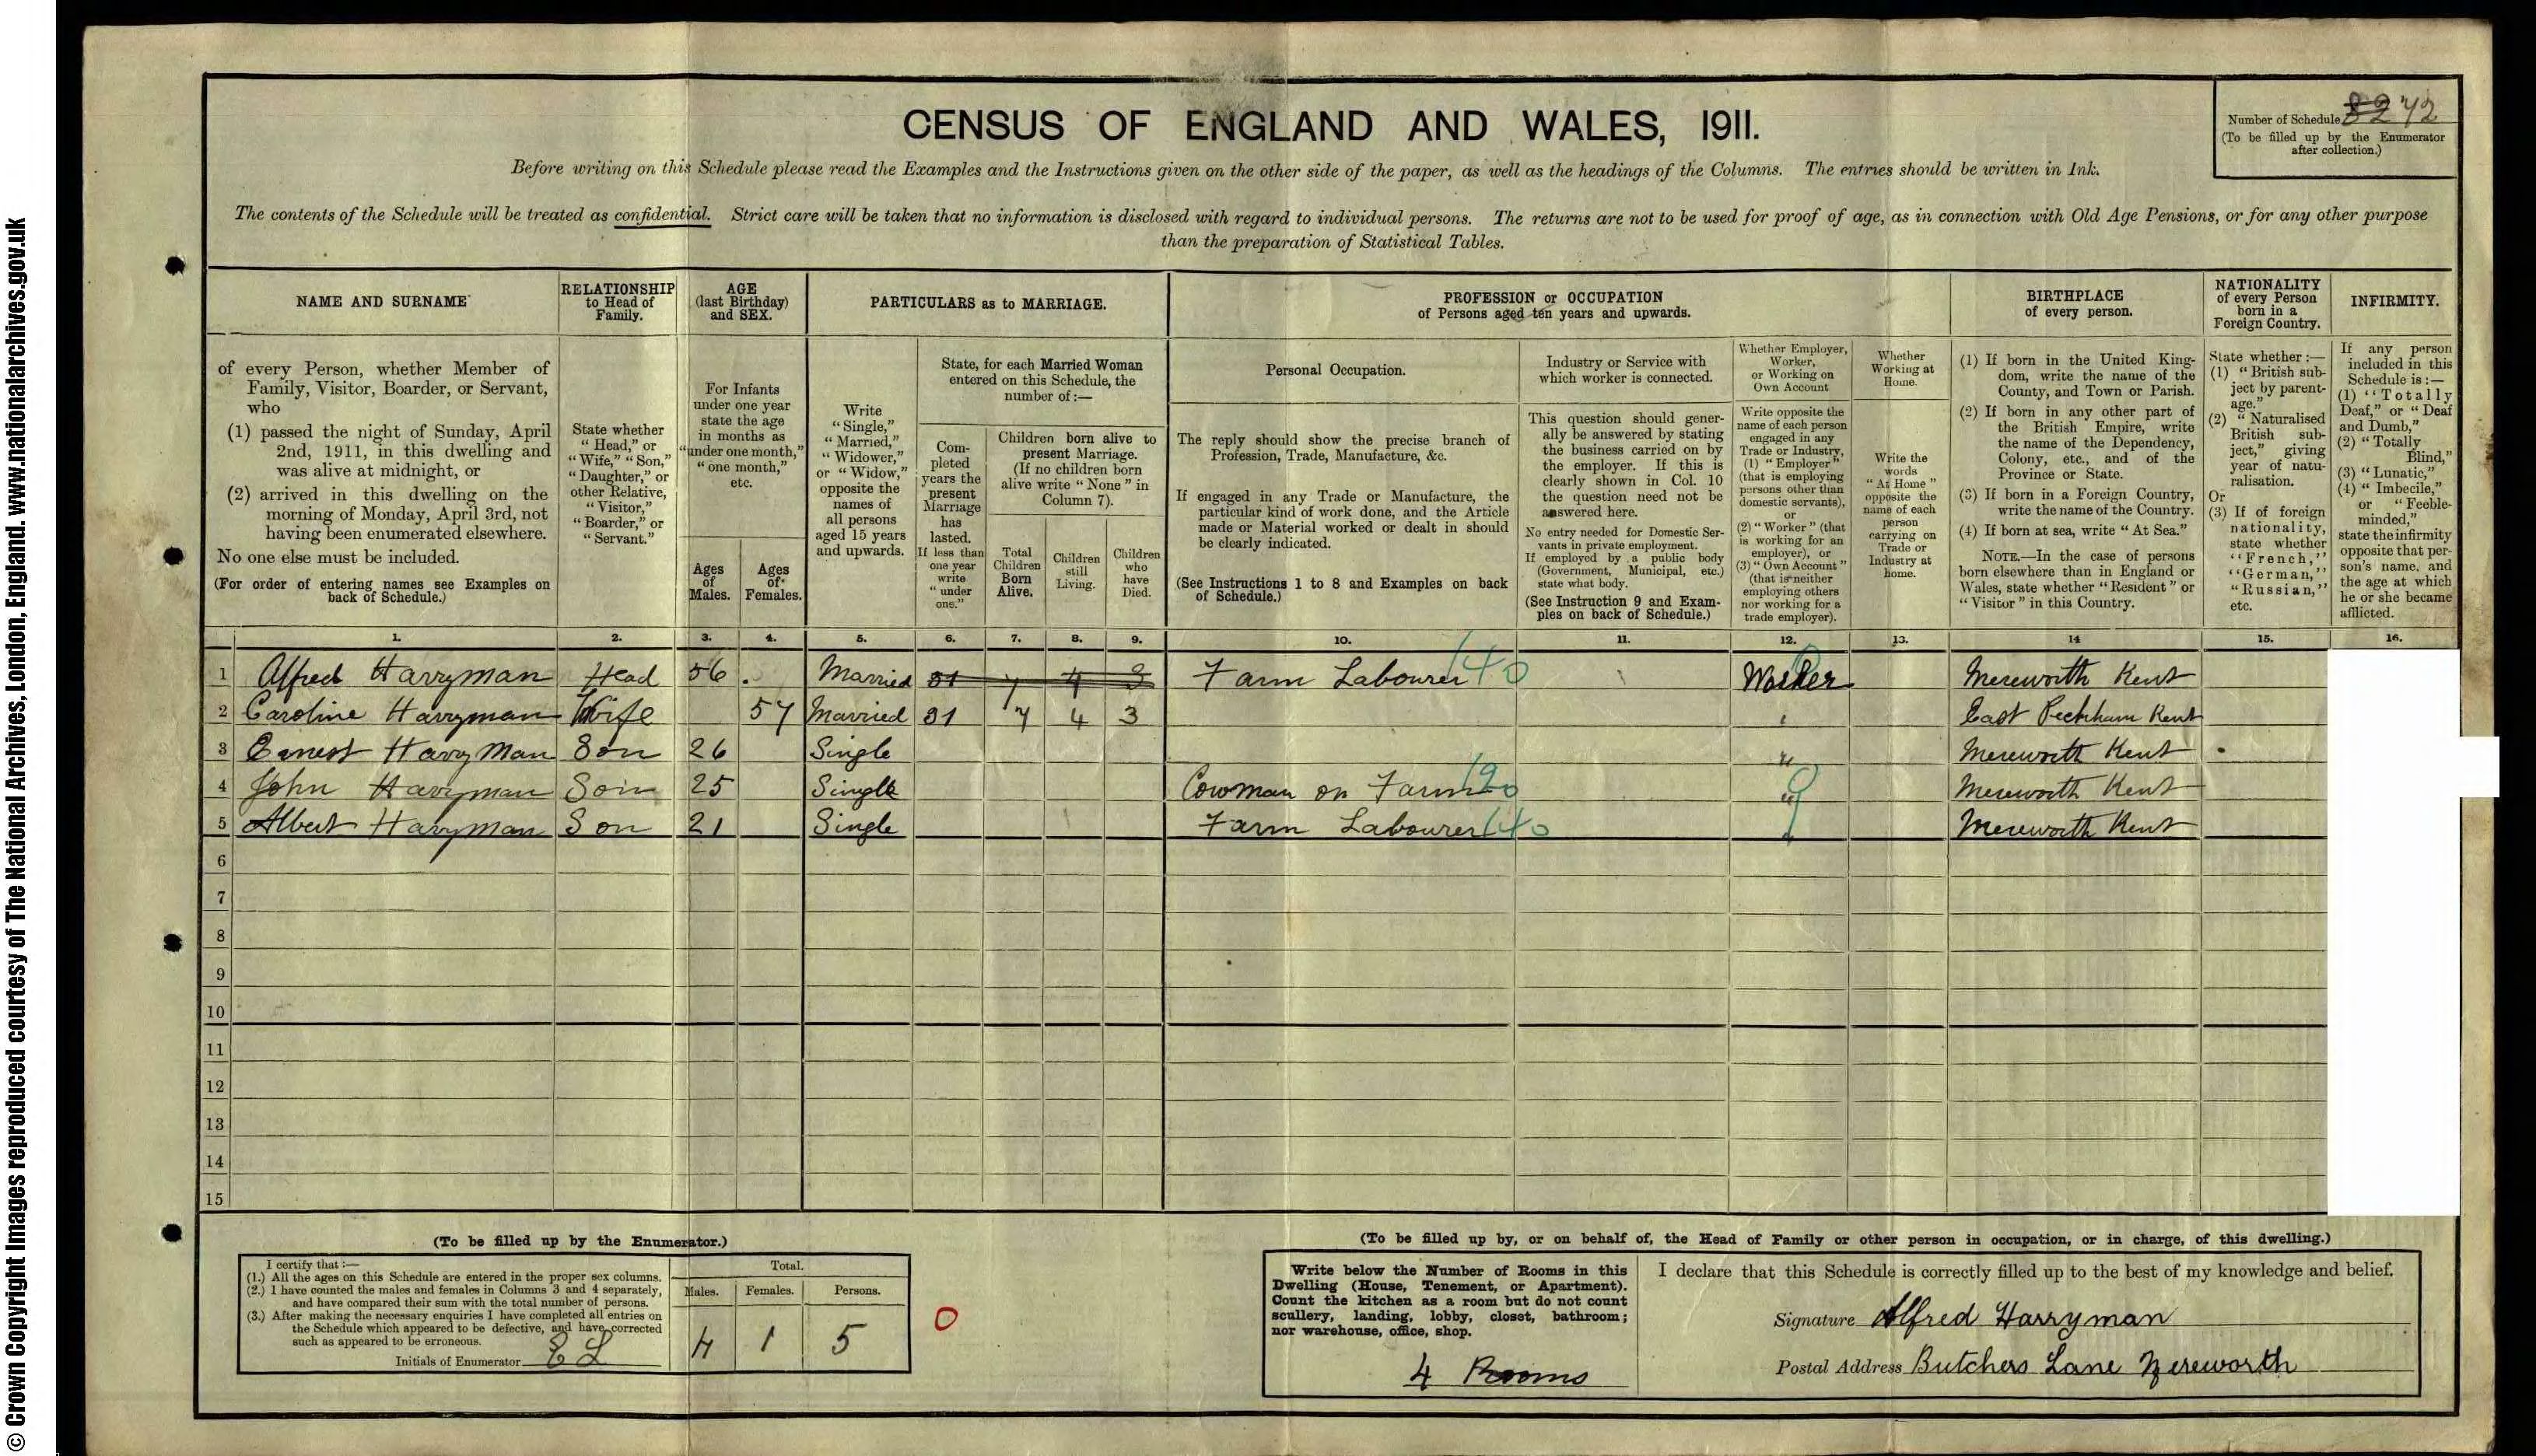 © Crown Copyright Images reproduced courtesy of The National Archives, London, England. www.nationalarchives.gov.uk
CENSUS OF ENGLAND AND WALES, 1911.
Number of Schedule 82 72
(To be filled up by the Enumerator
after collection.)
Before writing on this Schedule please read the Examples and the Instructions given on the other side of the paper, as well as the headings of the Columns. The entries should be written in Ink.
The contents of the Schedule will be treated as confidential. Strict care will be taken that no information is disclosed with regard to individual persons. The returns are not to be used for proof of age, as in connection with Old Age Pensions, or for any other purpose
than the preparation of Statistical Tables.
NAME AND SURNAME
of every Person, whether Member of
Family, Visitor, Boarder, or Servant,
who
(1) passed the night of Sunday, April
2nd, 1911, in this dwelling and
was alive at midnight, or
(2) arrived in this dwelling on the
morning of Monday, April 3rd, not
having been enumerated elsewhere.
No one else must be included.
(For order of entering names see Examples on
back of Schedule.)
RELATIONSHIP
to Head of
Family.
State whether
“Head,” or
“Wife,” “Son,”
“Daughter,” or
other Relative,
“Visitor,”
“Boarder,” or
“Servant.”
AGE
(last Birthday)
and SEX.
For Infants
under one year
state the age
in months as
“under one month,”
“one month,”
etc.
Ages
of
Males.
Ages
of
Females.
PARTICULARS as to MARRIAGE.
Write
“Single,”
“Married,”
“Widower,”
or “Widow,”
opposite the
names of
all persons
aged 15 years
and upwards.
State, for each Married Woman
entered on this Schedule, the
number of:—
Com-
pleted
years the
present
Marriage
has
lasted.
If less than
one year
write
“under
one.”
Children born alive to
present Marriage.
(If no children born
alive write “None” in
Column 7).
Total
Children
Born
Alive.
Children
still
Living.
Children
who
have
Died.
PROFESSION or OCCUPATION
of Persons aged ten years and upwards.
Personal Occupation.
The reply should show the precise branch of
Profession, Trade, Manufacture, &c.
If engaged in any Trade or Manufacture, the
particular kind of work done, and the Article
made or Material worked or dealt in should
be clearly indicated.
(See Instructions 1 to 8 and Examples on back
of Schedule.)
Industry or Service with
which worker is connected.
This question should gener-
ally be answered by stating
the business carried on by
the employer. If this is
clearly shown in Col. 10
the question need not be
answered here.
No entry needed for Domestic Ser-
vants in private employment.
If employed by a public body
(Government, Municipal, etc.)
state what body.
(See Instruction 9 and Exam-
ples on back of Schedule.)
Whether Employer,
Worker,
or Working on
Own Account
Write opposite the
name of each person
engaged in any
Trade or Industry,
(1) “Employer”
(that is employing
persons other than
domestic servants),
or
(2) “Worker” (that
is working for an
employer), or
(3) “Own Account”
(that is neither
employing others
nor working for a
trade employer).
Whether
Working at
Home.
Write the
words
“At Home”
opposite the
name of each
person
carrying on
Trade or
Industry at
home.
BIRTHPLACE
of every person.
(1) If born in the United King-
dom, write the name of the
County, and Town or Parish.
(2) If born in any other part of
the British Empire, write
the name of the Dependency,
Colony, etc., and of the
Province or State.
(3) If born in a Foreign Country,
write the name of the Country.
(4) If born at sea, write “At Sea.”
NOTE.—In the case of persons
born elsewhere than in England or
Wales, state whether “Resident” or
“Visitor” in this Country.
NATIONALITY
of every Person
born in a
Foreign Country.
State whether :—
(1) “British sub-
ject by parent-
age.”
(2) “Naturalised
British sub-
ject,” giving
year of natu-
ralisation.
Or
(3) If of foreign
nationality,
state whether
“French,”
“German,”
“Russian,”
etc.
INFIRMITY.
If any person
included in this
Schedule is :—
(1) “Totally
Deaf,” or “Deaf
and Dumb,”
(2) “Totally
Blind,”
(3) “Lunatic,”
(4) “Imbecile,”
or “Feeble-
minded,”
state the infirmity
opposite that per-
son's name, and
the age at which
he or she became
afflicted.
1. 2. 3. 4. 5. 6. 7. 8. 9. 10. 11. 12. 13. 14 15. 16.
1 Alfred Harryman Head 56 Married 31 7 4 3 Farm Labourer 140 Worker Mereworth Kent
2 Caroline Harryman Wife 57 Married 31 7 4 3 East Peckham Kent
3 Ernest Harryman Son 26 Single " Mereworth Kent
4 John Harryman Son 25 Single Cowman on Farm 120 " Mereworth Kent
5 Albert Harryman Son 21 Single Farm Labourer 140 " Mereworth Kent
6
7
8
9
10
11
12
13
14
15
(To be filled up by the Enumerator.)
I certify that :—
(1.) All the ages on this Schedule are entered in the proper sex columns.
(2.) I have counted the males and females in Columns 3 and 4 separately,
and have compared their sum with the total number of persons.
(3.) After making the necessary enquiries I have completed all entries on
the Schedule which appeared to be defective, and have corrected
such as appeared to be erroneous.
Initials of Enumerator E L
Total.
Males. Females. Persons.
4 1 5
0
(To be filled up by, or on behalf of, the Head of Family or other person in occupation, or in charge, of this dwelling.)
Write below the Number of Rooms in this
Dwelling (House, Tenement, or Apartment).
Count the kitchen as a room but do not count
scullery, landing, lobby, closet, bathroom;
nor warehouse, office, shop.
4 Rooms
I declare that this Schedule is correctly filled up to the best of my knowledge and belief.
Signature Alfred Harryman
Postal Address Butchers Lane Mereworth